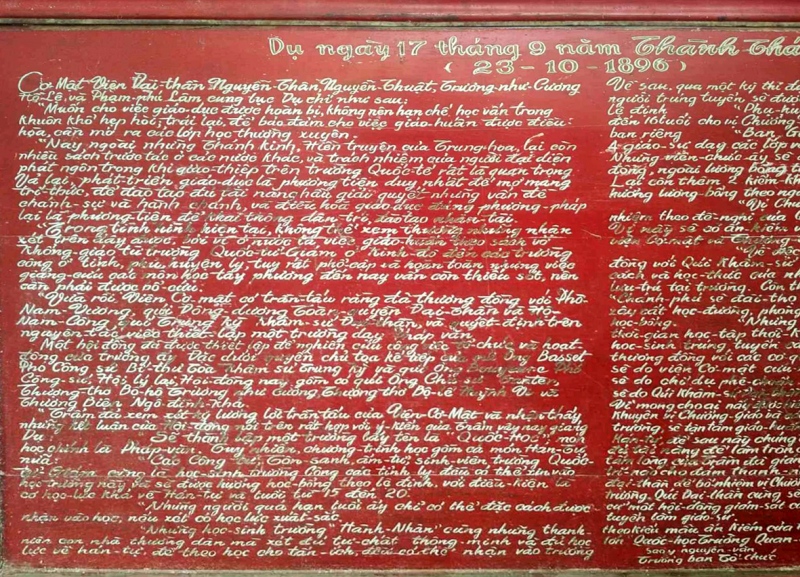 Dụ ngày 17 tháng 9 năm Thành-Thá
( 23-10-1896 )
Cơ Mật-Viện Đại-thần Nguyễn-Thân, Nguyễn-Thuật, Trương-như-Cương
Hồ-Lệ, và Phạm-phú Lâm cung lục Dụ chỉ như sau:
"Muốn cho việc giáo-dục được hoàn bị, không nên hạn chế học vấn trong
khuôn khổ hẹp hòi, trái lại, để bảo đảm cho việc giáo-huấn được điều
hòa, cần mở ra các lớp học thường xuyên.
"Nay, ngoài những Thánh kinh, Hiền truyện của Trung-hoa, lại còn
nhiều sách trước tác ở các nước khác, và trách nhiệm của người đại diện
phát ngôn trong khi giao-thiệp trên trường Quốc-tế rất là quan trọng
Vả lại, phát-triển giáo-dục là phương tiện duy nhất để mở mang
trí thức, để đào tạo đủ tài năng hầu giải quyết những vấn đề
chánh-sự và hành chánh, và điều hòa giáo-dục đúng phương-pháp
lại là phương-tiện để khai thông dân-trí, đào tạo nhân-tài.
"Trong tình hình hiện tại, không thể xem thường những nhận
xét trên đây được, bởi vì ở nước ta, việc giáo-huấn theo sách vở
Không-giáo từ trường Quốc-tử-Giám ở Kinh-đô đến các trường
công ở tỉnh, phủ, huyện lỵ, tuy rất phổ-cập và hoàn toàn nhưng việc
giảng-cứu các môn học Tây phương đến nay vẫn còn thiếu sót, nên
cần phải được bổ-cứu.
"Vừa rồi Viện Cơ-mật có trần-tấu rằng đã thương đồng với Phó-
Nam-Vương, quí Đông-dương Toàn-quyền Đại-thần và Hộ-
Nam-Công, quí Trung kỳ Khâm-sứ Đại-thần, và quyết định trên
nguyên-tắc việc thiết-lập một trường dạy Pháp văn.
Một hội đồng đã được thiết lập để nghiên cứu việc tổ-chức và hoạt-
động của trường ấy. Đặc dưới quyền chủ tọa kế tiếp của quí Ông Basset
Phó Công sứ, Bí-thư Tòa Khâm sứ Trung kỳ và quí Ông Phó
Công-sứ, Hội lý tại, Hội-đồng này, gồm có quí Ông Chủ sự
Thượng-thơ Bộ-hộ Trương như Cương, Thượng thơ Bộ-lễ Huỳnh Vĩ và
Thương Biện Ngô Đình-Khả.
"Trẫm đã xem xét kỹ lưỡng lời trần tấu của Viện-Cơ-Mật và nhận thấy
những kết luận của Hội-đồng nói trên rất hợp với ý-kiến của Trẫm vậy nay giáng
Dụ Sẽ thành lập một trường lấy tên là "Quốc-Học" môn
học chính là Pháp-văn. Tuy nhiên, chương-trình học gồm cả môn Hán-Tự
nữa: Các Công Tử, Tôn-sanh, ấm-tử, sinh-viên trường Quốc-
tử Giám cùng là học-sinh trường Công các tỉnh lỵ đều có thể xin vào
học trường này và sẽ được hưởng học-bổng theo lệ định, với điều-kiện là
có học-lực khá về Hán-tự và tuổi từ 15 đến 20.
Những người quá hạn tuổi ấy chỉ có thể đặc cách được
nhận vào học, nếu xét có học lực xuất-sắc.
Những học-sinh trường "Hành-Nhân" cũng những thanh-
niên con nhà thường dân mà xét có tư-chất thông-minh và đủ học
lực về hán-tự, để theo học cho tấn-ích, đều có thể nhận vào trường
Về sau, qua một kỳ thi
người trúng tuyển, sẽ đượ
lệ định. "Phụ-hu
đến 16 tuổi cho vì Chưởng
ban riêng "Ban T
4 giáo-sư dạy các lớp v
Những viên-chức ấy sẽ
đồng, ngoài lương bổng
Lại còn thăm 2 kiểm-
hưởng lương-bổng theo ngạ
"Vị Chư
nhiệm theo đề-nghị của
Vị này sẽ có ấn-kiếm
viện Cơ-mật và Thượng-
đồng với Quí Khâm-sứ
cách và học-thức của nh
lưu-trú tại trường. Còn
Chánh-phủ sẽ đài-thọ
xây cất học-đường, phòng
học-bổng. "Những
thời gian học-tập thời-
học-sinh trung tuyển s
thương đồng với các cơ-q
sẽ do viện Cơ-mật của
sẽ do chỉ dụ phê-chuẩn
do Quí Khâm-sứ
Vì mong cho
Nhuyến vị Chưởng-giáo và cá
trường, sẽ tận tâm giáo-hu
để sau này chúng
đủ tài-năng để làm tròn
tấm lòng của trẫm đối
đại-thần để bổ-nhiệm vị Chư
trường, Quí Đại-thần cũng sẽ
cử một hội-đồng giám-sát c
tuyển lâm giáo-sư.
theo kiểu mẫu ấn Kiếm của
lớn Quốc-học Trường Quan-
Saoy nguyên-văn
Trưởng ban Tổ-chức